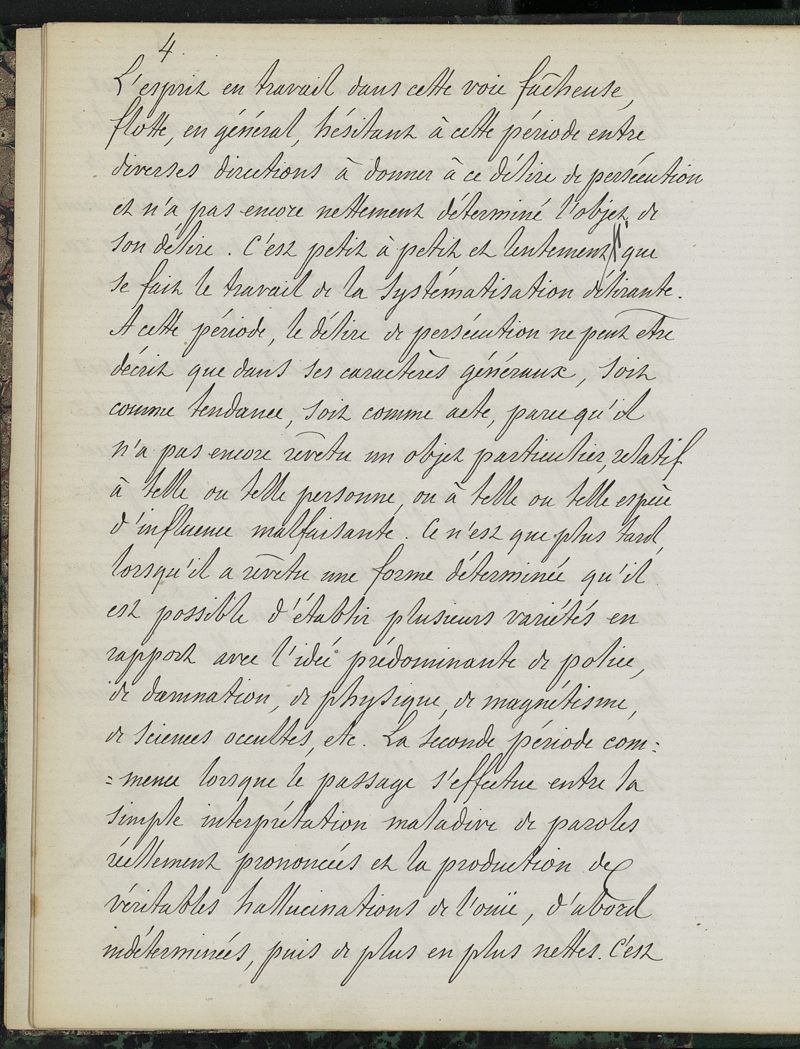 4
L'esprit en travail dans cette voie fâcheuse,
flotte, en général, hésitant à cette période entre
diverses directions à donner à ce délire de persécution
et n'a pas encore nettement déterminé l'objet de
son délire. C'est petit à petit et lentement que
se fait le travail de la systématisation délirante.
A cette période, le délire de persécution ne peut être
décrit que dans ses caractères généraux, soit
comme tendance, soit comme acte, parce qu'il
n'a pas encore revêtu un objet particulier, relatif
à telle ou telle personne, ou à telle ou telle espèce
d'influence malfaisante. Ce n'est que plus tard,
lorsqu'il a revêtu une forme déterminée qu'il
est possible d'établir plusieurs variétés en
rapport avec l'idée prédominante de police,
de damnation, de physique, de magnétisme,
de sciences occultes, etc. La seconde période com=
=mence lorsque le passage s'effectue entre la
simple interprétation maladive de paroles
réellement prononcées et la production de
véritables hallucinations de l'ouïe, d'abord
indéterminées, puis de plus en plus nettes. C'est